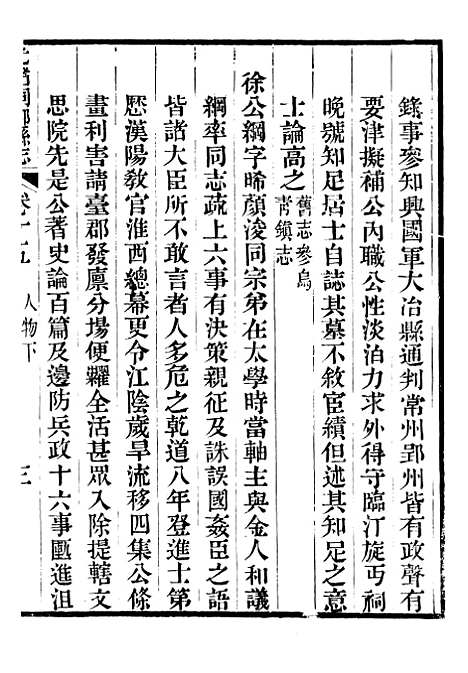 錄事參知興國軍大冶縣通判常州鄂州皆有政聲有
要津擬補公內職公性淡泊力求外得守臨汀旋丐祠
晚號知足居士自誌其墓不敘宦績但述其知足之意
士論高之舊志參烏
青鎮志
徐公綱字晞顏浚同宗弟在太學時當軸主與金人和議
綱率同志疏上六事有決策親征及誅誤國姦臣之語
皆諸大臣所不敢言者人多危之乾道八年登進士第
歷漢陽敎官淮西總幕更令江陰歲旱流移四集公條
畫利害請臺郡發廩分場便糶全活甚眾入除提轄文
思院先是公著史論百篇及邊防兵政十六事匭進沮
卷十五 人物下 三